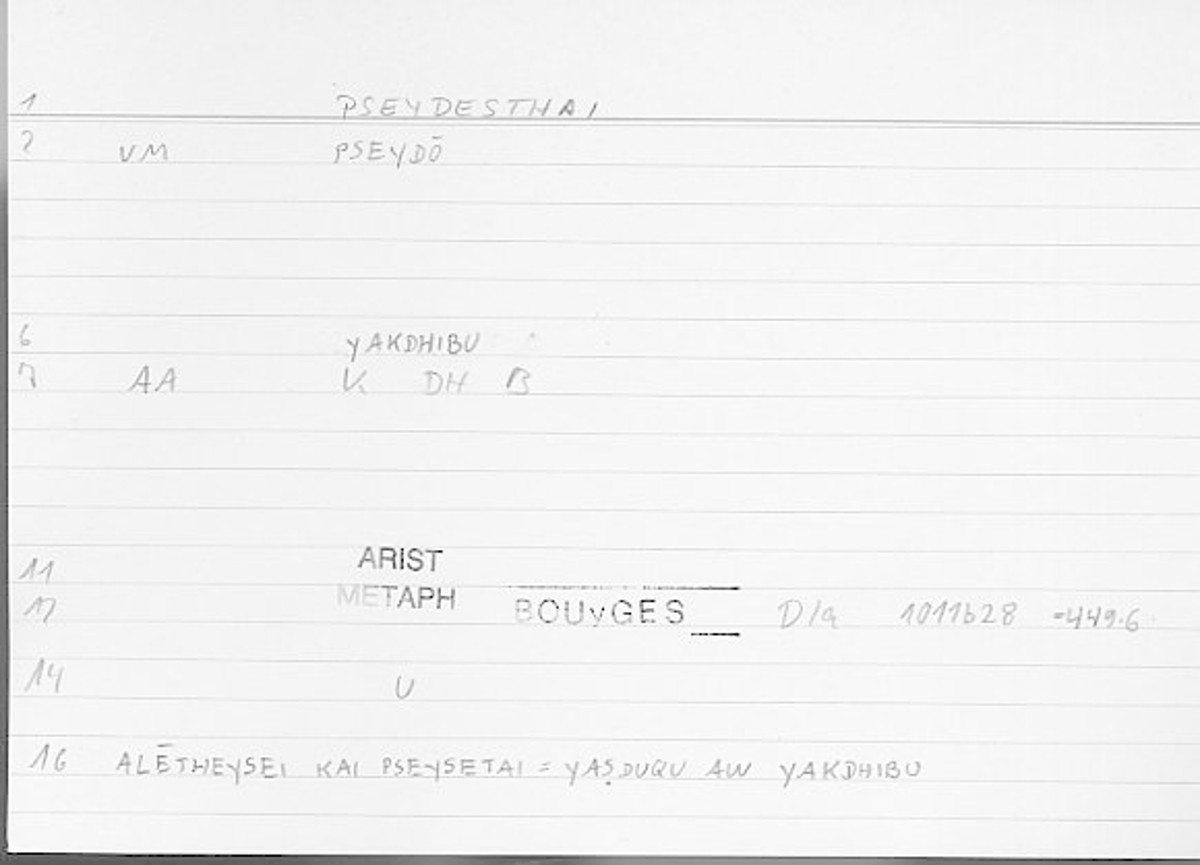 1 PSEYDESTHAI
2 VM PSEYDŌ
6 YAKDHIBU
7 AA K DH B
11 ARIST
12 METAPH BOUYGES D/a 1011b28 =449.6
14 U
16 ALĒTHEYSEI KAI PSEYSETAI = YAṢDUQU AW YAKDHIBU